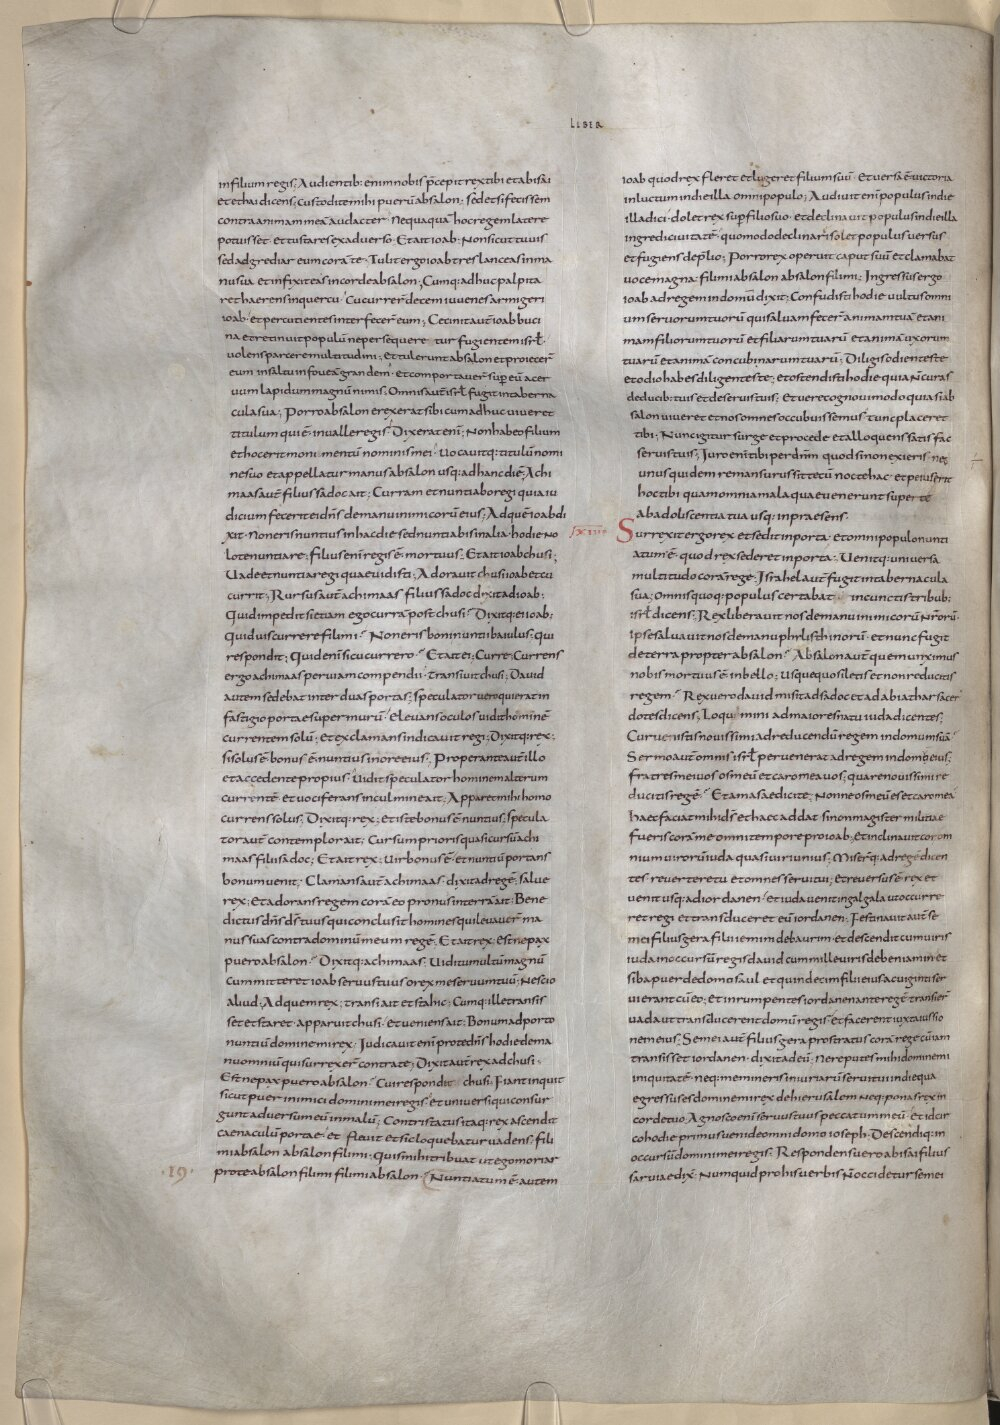 LIBER
in filium regis; Audientib; enim nobis p̄cepit rex tibi et abisai
et ethai dicens; Custodite mihi puerū absalon; sed et si fecissem
contra animam meā audacter nequaquā hoc regem latere
potuisset· et tu stares ex adverso· Et ait ioab; Non sicut tu uis
sed adgrediar eum corā te· Tulit ergo ioab tres lanceas in ma
nu sua et infixit eas in corde absalon; Cumq; adhuc palpita
ret haerens in quercu· Cucurrer̄ decem iuuenes armigeri
ioab· et percutientes interfecer̄ eum; Cecinit aut̄ ioab buci
na et retinuit populū ne persequere tur fugientem isrl·
uolens parcere multitudini; Et tulerunt absalon et proiecer̄
eum in saltu in foueā grandem· et comportauer̄ sup eū acer
uum lapidum magnū nimis; Omnis aut̄ isrl fugit in taberna
cula sua; Porro absalon erexerat sibi cum adhuc uiueret
titulum qui ē in ualle regis· Dixerat eni; Non habeo filium
et hoc erit moni mentū nominis mei· Uocauitq; titulū nomi
ne suo et appellatur manus absalon usq; ad hanc diē; Achi
maas aut̄ filius sadoc ait; Curram et nuntiabo regi quia iu
dicium fecerit ei dn̄s de manu inimicorū eius; Ad quē ioab di
xit· Non eris nuntius in hac die sed nuntiabis in alia· hodie no
lo te nuntiare· filius eni regis ē· mortuus· Et ait ioab chusi;
Uade et nuntia regi quae uidisti; Adorauit chusi ioab et cu
currit; Rursus aut̄ achimaas filius sadoc dixit ad ioab;
Quid impedit si etiam ego currā post chusi· Dixitq; ei ioab;
Quid uis currere fili mi· Non eris boni nuntii baiulus; qui
respondit; Quid eni si cucurrero· Et ait ei; Curre; Currens
ergo achimaas per uiam compendii· transiuit chusi; Dauid
autem sedebat inter duas portas; speculator uero qui erat in
fastigio portae super murū· eleuans oculos uidit hominē
currentem solū; et exclamans indicauit regi; Dixitq; rex;
si solus ē· bonus ē· nuntius in ore eius; Properante aut̄ illo
et accedente propius· uidit speculator hominem alterum
currentē· et uociferans in culmine ait; Apparet mihi homo
currens solus; Dixitq; rex; et iste bonus ē nuntius; specula
tor aut̄ contemplor ait; Cursum prioris quasi cursū achi
maas filii sadoc; Et ait rex; Uir bonus ē· et nuntiū portans
bonum uenit; Clamans aut̄ achimaas· dixit ad regē; salue
rex; Et adorans regem corā eo pronus in terrā ait; Bene
dictus dn̄s d̄s tuus qui conclusit homines qui leuauer̄ ma
nus suas contra dominū meum regē; Et ait rex; Est ne pax
puero absalon· Dixitq; achimaas; Uidi tumultū magnū
cum mitteret ioab seruus tuus o rex me seruum tuū; Nescio
aliud; Ad quem rex; transi ait et sta hic; Cumq; ille transis
set et staret· apparuit chusi· et ueniens ait· Bonum adporto
nuntiū domine mi rex; Iudicauit eni pro te dn̄s hodie de ma
nu omniū qui surrexer̄ contra te; Dixit aut̄ rex ad chusi·
Est ne pax puero absalon· Cui respondit chusi· Fiant inquit
sicut puer inimici domini mei regis· et uniuersi qui consur
gunt aduersum eū in malū; Contristatus itaq; rex ascendit
caenaculū portae· et fleuit et sic loquebatur uadens· fili
mi absalon absalon fili mi; Quis mihi tribuat ut ego moriar
pro te absalon fili mi fili mi absalon· Nuntiatum ē· autem
·19·
ioab quod rex fleret et lugeret filium suū· et uersa ē uictoria
in luctum in die illa omni populo; Audiuit eni populus in die
illa dici· dolet rex sup filio suo· et declinauit populus in die illa
ingredi ciuitatē· quomodo declinari solet populus uersus
et fugiens de p̄lio; Porro rex operuit caput suū et clamabat
uoce magna· fili mi absalon absalon fili mi; Ingressus ergo
ioab ad regem in domū dixit; Confudisti hodie uultus omni
um seruorum tuorū qui saluam fecer̄ animam tuā et ani
mam filiorum tuorū et filiarum tuarū et animā uxorum
tuarū et animā concubinarum tuarū; Diligis odientes te
et odio habes diligentes te; et ostendisti hodie quia n̄ curas
de ducib; tuis et de seruis tuis; Et uere cognoui modo quia si ab
salon uiueret et nos omnes occubuissemus· tunc placeret
tibi; Nunc igitur surge et procede et alloquens satis fac
seruis tuis; Iuro eni tibi per dnm quod si non exieris· ne
unus quidem remansurus sit tecū nocte hac· et peius erit
hoc tibi quam omnia mala quae uenerunt super te
ab adoliscentia tua usq; in praesens·
Surrexit ergo rex et sedit in porta· et omni populo nunti
atum ē· quod rex sederet in porta; Uenitq; uniuersa
multitudo corā rege· Israhel aut̄ fugit in tabernacula
sua; Omnis quoq; populus certabat in cunctis tribub;
isrl dicens; Rex liberauit nos de manu inimicorū nr̄orū
ipse saluauit nos de manu philisthinorū· et nunc fugit
de terra propter absalon· Absalon aut̄ quem unximus
nobis mortuus ē in bello; Usquequo siletis et non reducitis
regem· Rex uero dauid misit ad sadoc et ad abiathar sacer
dotes dicens; Loqui mini ad maiores natu iuda dicentes;
Cur uenistis nouissimi ad reducendū regem in domum suā·
Sermo aut̄ omnis isrl peruenerat ad regem in domo eius;
fratres mei uos os meū et caro mea uos; quare nouissimi re
ducitis regē· Et amasae dicite; Nonne os meū es et caro mea
haec faciat mihi d̄s et haec addat si non magister militiae
fueris corā me omni tempore pro ioab; Et inclinauit cor om
nium uirorū iuda quasi uiri unius; Miserq; ad regē dicen
tes· reuertere tu et omnes serui tui; Et reuersus ē rex et
uenit usq; ad iordanen· et iuda uenit in galgala ut occurre
ret regi et transduceret eū iordanen; Festinauit aut̄ se
mei filius gera filii iemini de baurim· et descendit cum uiris
iuda in occursū regis dauid cum mille uiris de beniamin et
siba puer de domo saul et quindecim filii eius ac uiginti ser
ui erant cū eo; et inrumpentes iordanen ante regē· transier̄
uada ut transducerent domū regis· et facerent iuxta iussio
nem eius; Semei aut̄ filius gera prostratus corā rege cū iam
transisset iordanen· dixit ad eū; Ne reputes mihi domine mi
iniquitatē· neq; memineris iniuriarū serui tui in die qua
egressus es domine mi rex de hierusalem· Neq; ponas rex in
corde tuo· Agnosco eni seruus tuus peccatum meū· et idcir
co hodie primus ueni de omni domo ioseph· Descendiq; in
occursū domini mei regis· Respondens uero abisai filius
saruiae dix̄· Numquid pro his uerbis n̄ occidetur semei